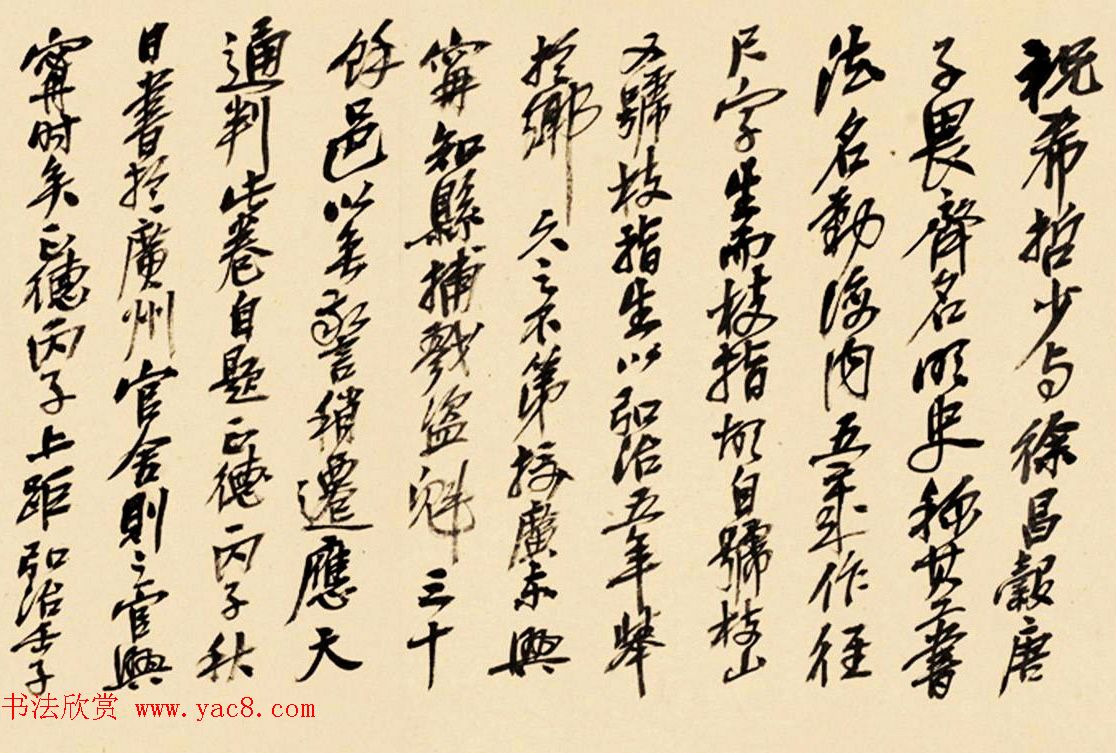 祝希哲少与徐昌穀唐
子畏齊名明史稱其工書
法名動海内五作徑
尺字生而枝指故自號枝山
又號枝指生以弘治五年舉
於鄉久之不第授廣東興
寧知縣捕戮盜魁三十
餘邑以無警稍遷應天
通判此卷自題正德丙子秋
日書於廣州官舍則之官興
寧时矣正德丙子上距弘治壬子
书法欣赏 www.yac8.com